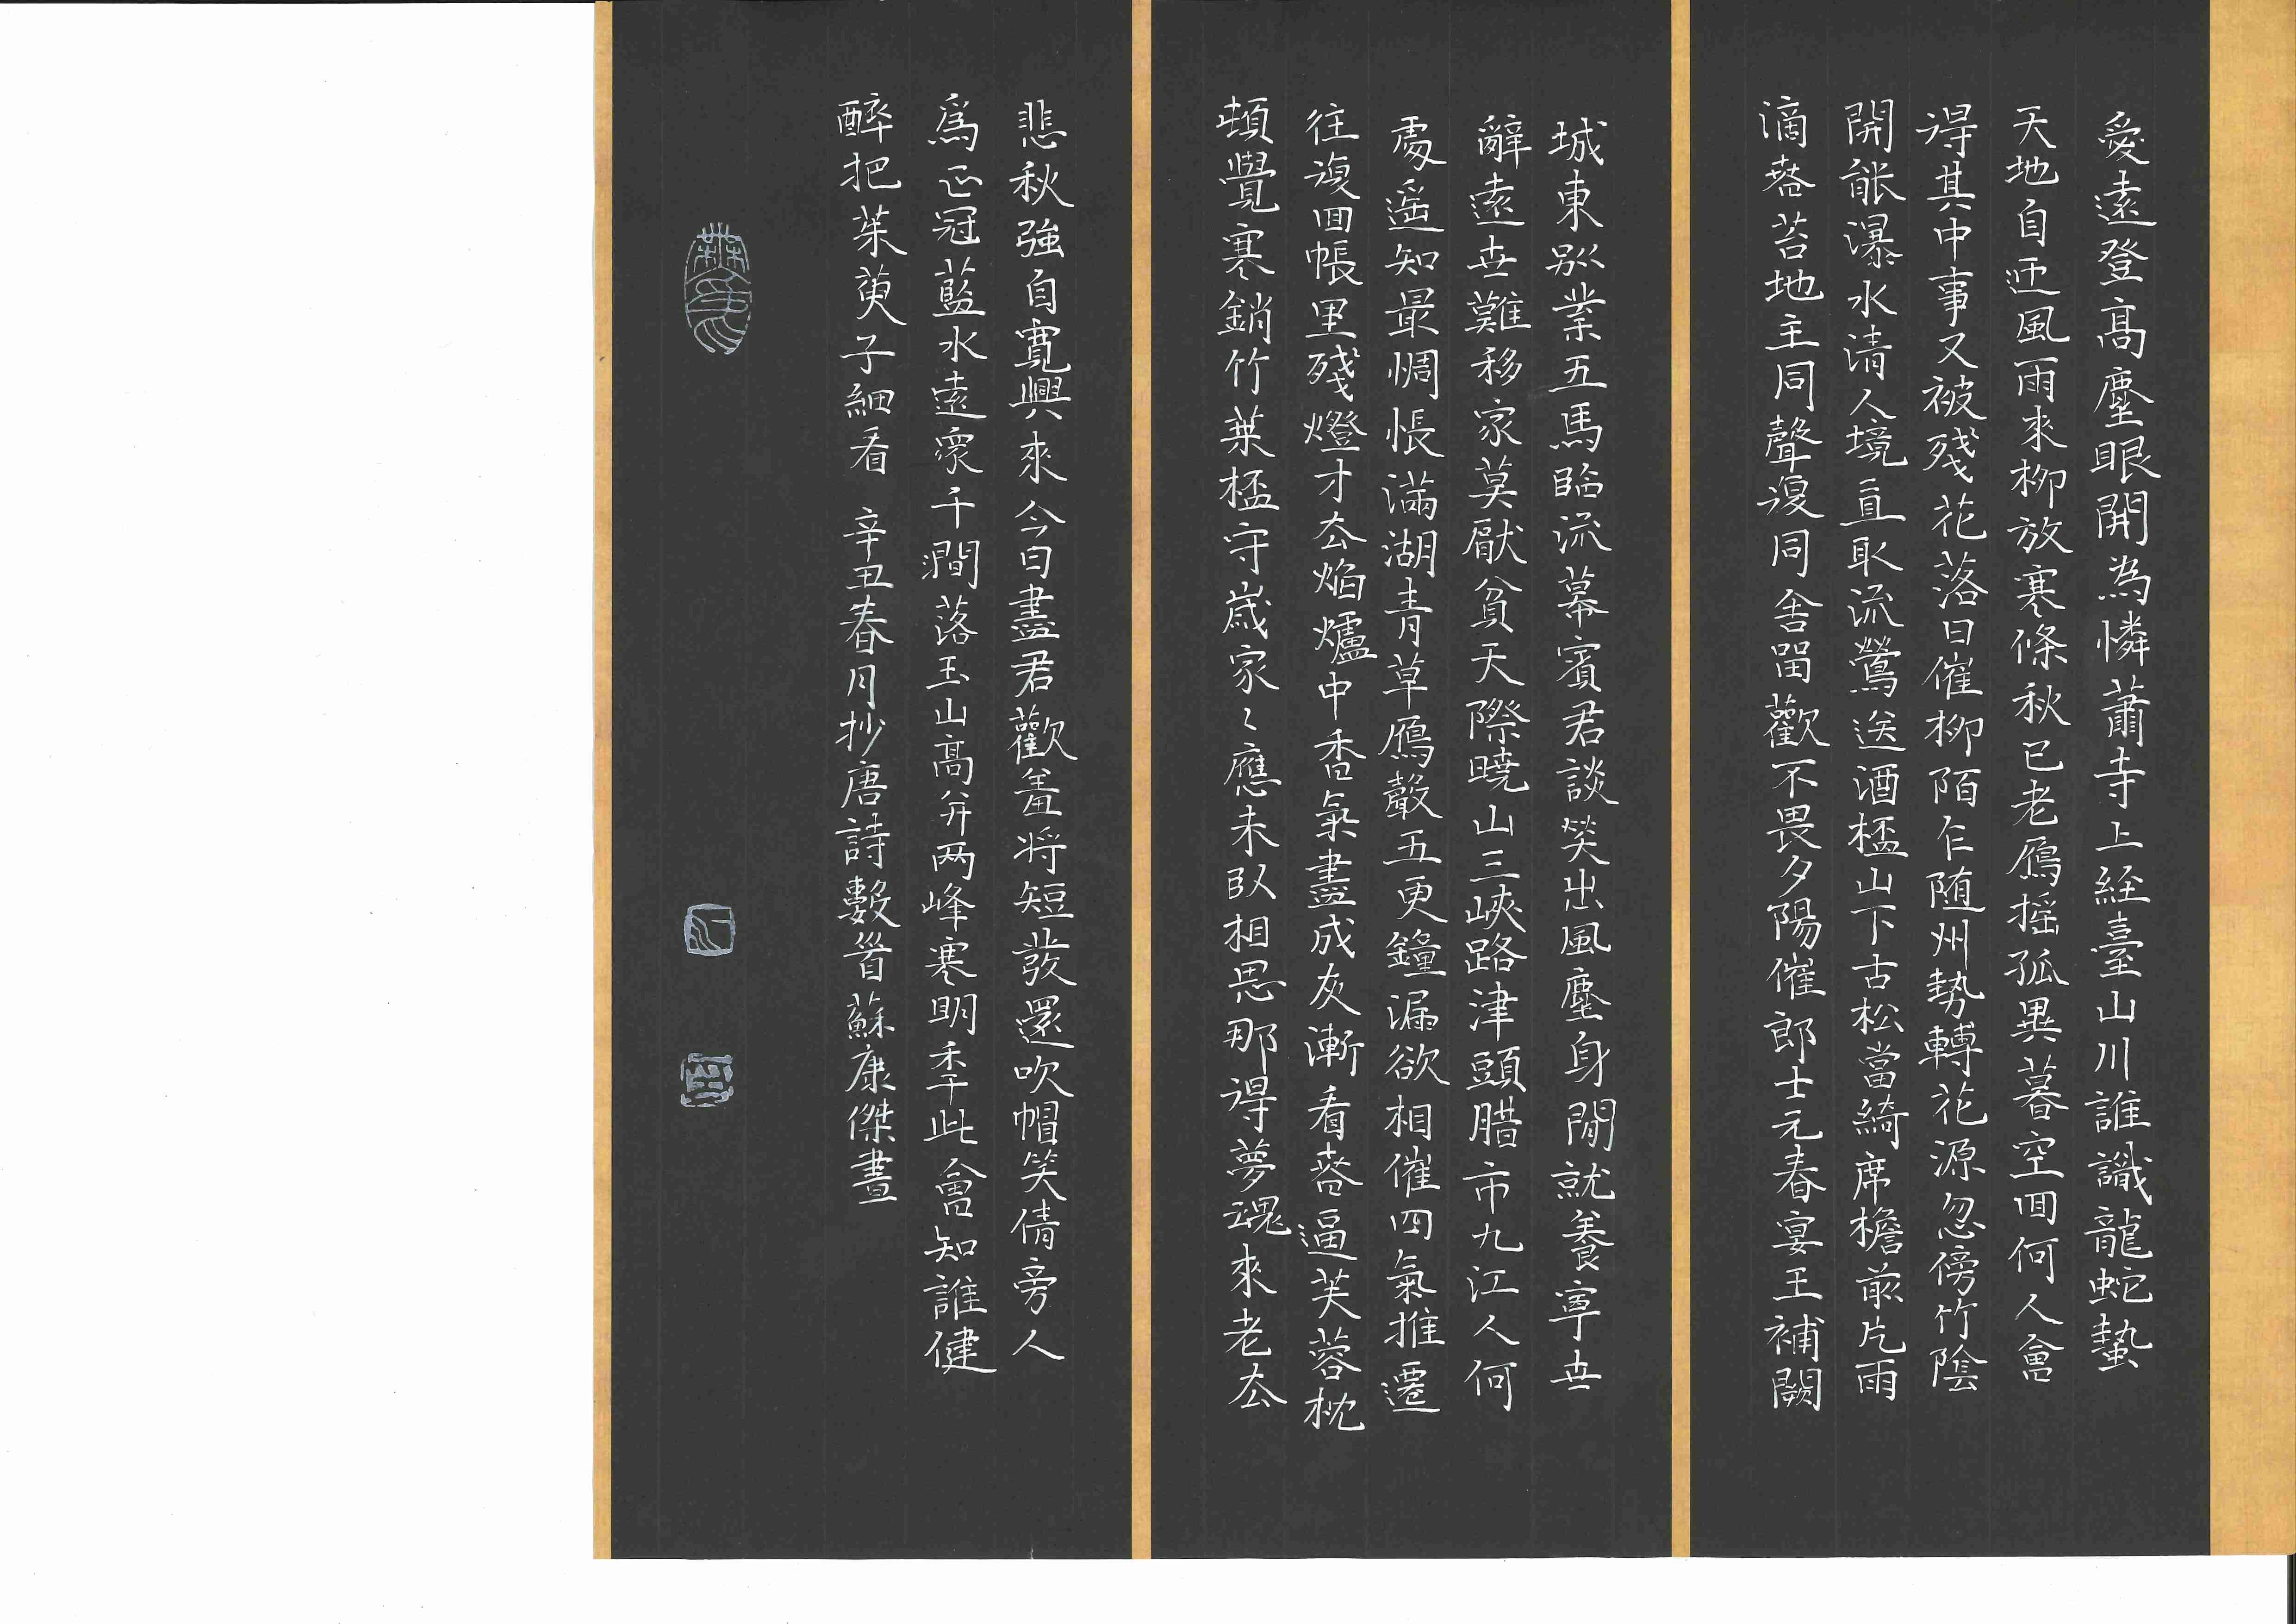 愛遠登高塵眼開為憐蕭寺上經臺山川誰識龍蛇蟄
天地自迊風雨來柳放寒條秋已老鴈搖孤異暮空回何人會
得其中事又被殘花落日催柳陌乍随州勢轉花源忽傍竹陰
開能瀑水清人境直取流鶯送酒桮山下古松當綺席檐前片雨
滴蒼苔地主同聲復同舍留歡不畏夕陽催郎士元春宴王補闕
城東別業五馬臨流幕賓君談笑出風塵身閒就養寧世
辭遠世難移家莫厭貧天際曉山三峽路津頭腊市九江人何
處遥知最惆悵滿湖青草鴈聲五更鐘漏欲相催四氣推遷
往復回帳里殘燈才去焰爐中香氣盡成灰漸看春逼芙蓉枕
頓覺寒銷竹葉桮守歲家々應未臥相思那得夢魂來老去
悲秋強自寬興來今日盡君歡羞将短髮還吹帽笑倩旁人
爲正冠藍水遠從千澗落玉山高并两峰寒明季此會知誰健
醉把茱萸子細看 辛丑春月抄唐詩數首蘇康傑書